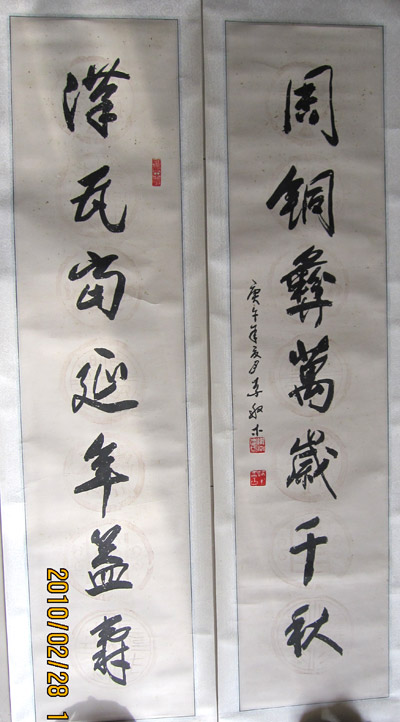 周銅彝萬歲千秋
庚午年夏月
漢瓦當延年益壽
2010/02/28 1